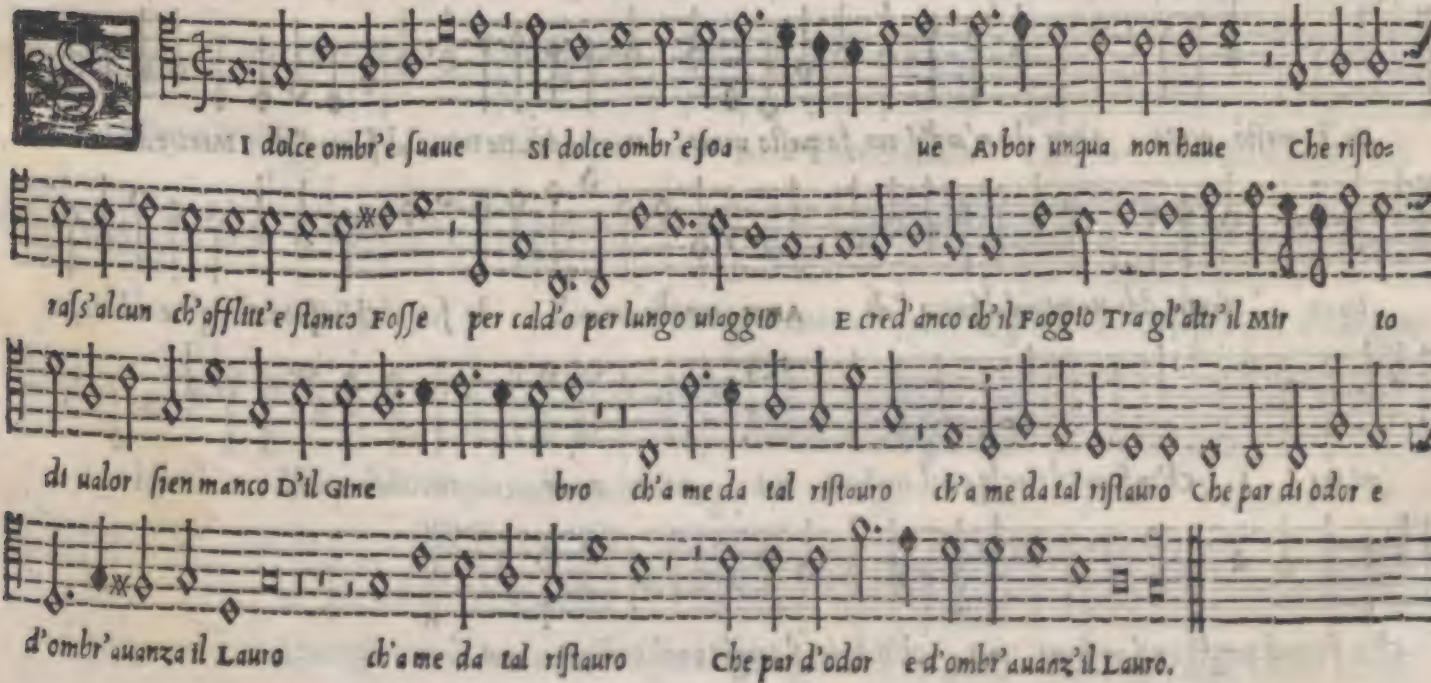 S
I dolce ombr'e ſuaue SI dolce ombr'e ſoa ue Arbor unqua non haue Che riſto=
raſs'alcun ch'afflitt'e ſtanco Foſſe per cald'o per lungo uiaggio E cred'anco ch'il Faggio Tra gl'altr'il Mir to
di ualor ſien manco D'il Gine bro ch'a me da tal riſtouro ch'a me da tal riſtauro Che par di odor e
d'ombr'auanza il Lauro ch'a me da tal riſtauro Che par d'odor e d'ombr'auanz'il Lauro.